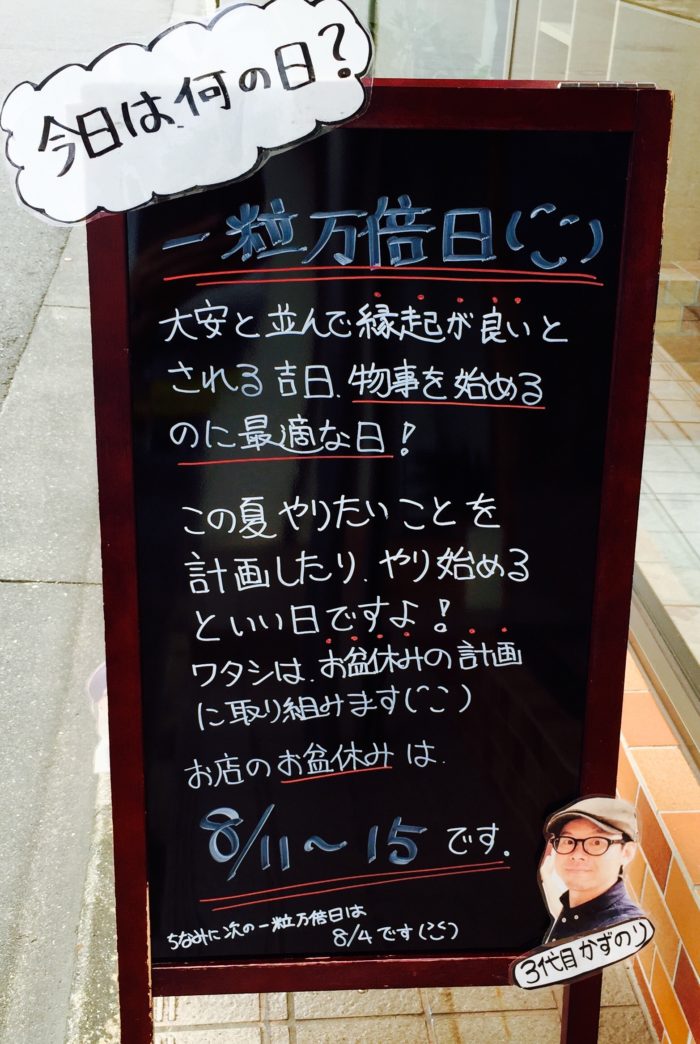 今日は何の日?
一粒万倍日(^^)
大安と並んで縁起が良いと
される吉日、物事を始める
のに最適な日!
この夏やりたいことを
計画したり、やり始める
といい日ですよ!
ワタシは、お盆休みの計画
に取り組みます(^^)
お店のお盆休みは、
8/11〜15です。
ちなみに次の一粒万倍日は
8/4です(^^)
3代目かずのり